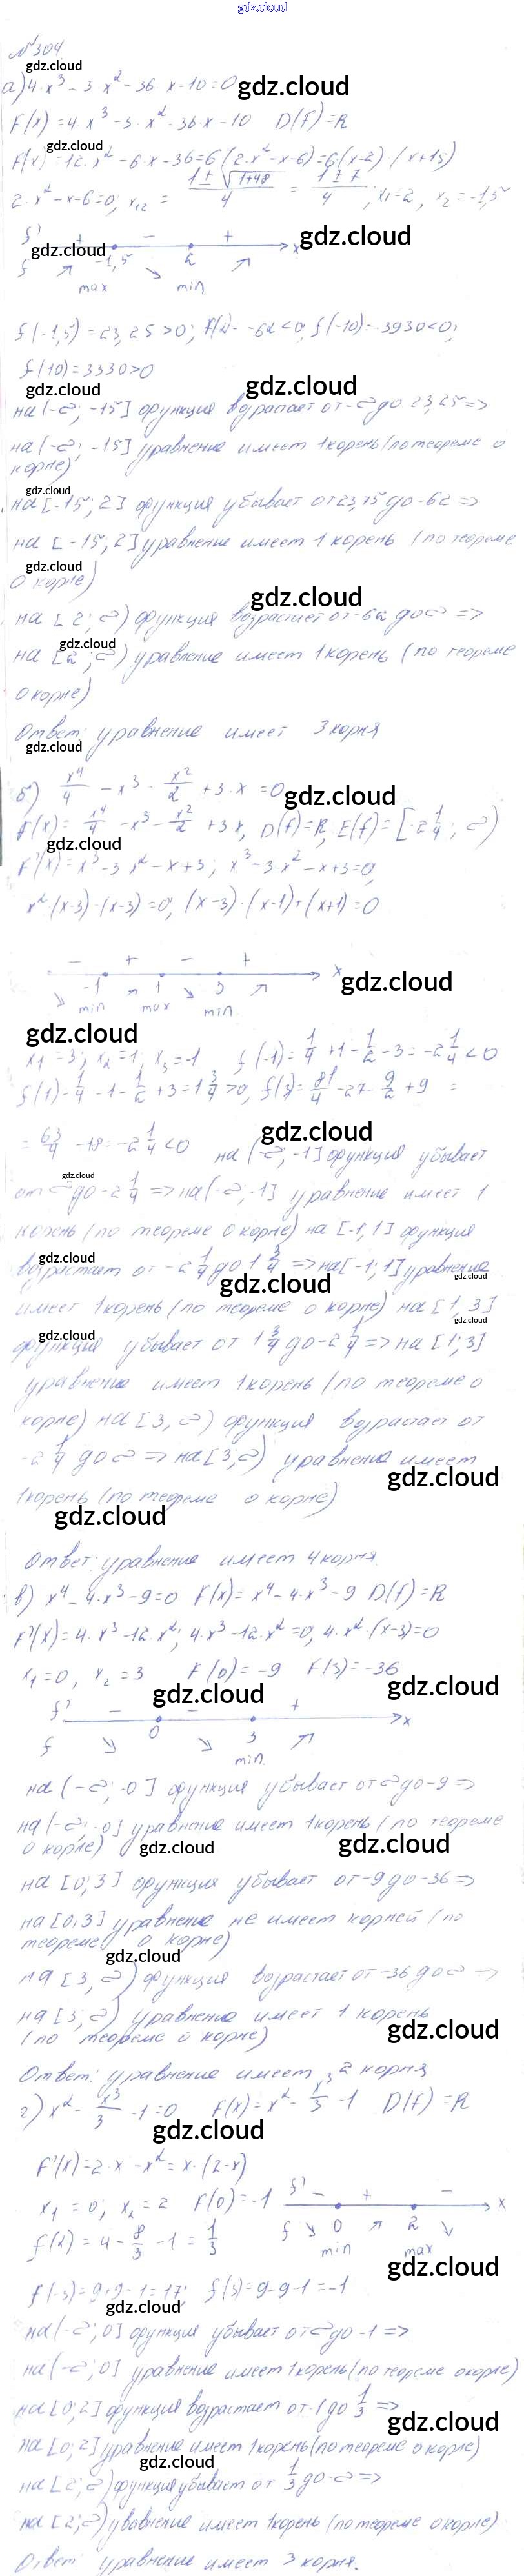 gdz.cloud
№304
gdz.cloud
а) 4·x³-3·x²-36·x-10=0 gdz.cloud
F(x)=4·x³-3·x²-36·x-10 D(f)=R
gdz.cloud
F'(x)=12·x²-6·x-36=6(2·x²-x-6)=6(x-2)·(x+15)
2·x²-x-6=0; x₁₂ = (1±√(1+48))/4 = (1±7)/4; x₁=2, x₂=-1,5
f' + - + gdz.cloud
gdz.cloud -1,5 2 x
f ↗ ↘ ↗
max min
f(-1,5)=23,25>0; f(2)=-62<0; f(-10)=-3930<0;
f(10)=3330>0
gdz.cloud gdz.cloud
на (-∞; -15] функция возрастает от -∞ до 23,25 =>
на (-∞; -15] уравнение имеет 1 корень (по теореме о
корне)
gdz.cloud
на [-15; 2] функция убывает от 23,75 до -62 =>
на [-15; 2] уравнение имеет 1 корень (по теореме
gdz.cloud
о корне)
gdz.cloud
на [2; ∞) функция возрастает от -62 до ∞ =>
gdz.cloud
на [2; ∞) уравнение имеет 1 корень (по теореме
о корне)
Ответ: уравнение имеет 3 корня
gdz.cloud
б) x⁴/4 - x³ - x²/2 + 3·x = 0 gdz.cloud
F(x) = x⁴/4 - x³ - x²/2 + 3x, D(f)=R, E(f)=[-2 1/4; ∞)
gdz.cloud
F'(x)=x³-3·x²-x+3; x³-3·x²-x+3=0,
x²·(x-3)-(x-3)=0; (x-3)·(x-1)·(x+1)=0
- + - +
-1 1 3 x gdz.cloud
↘ ↗ ↘ ↗
min max min
gdz.cloud
x₁=3; x₂=1; x₃=-1 f(-1)=1/4+1-1/2-3=-2 1/4<0
f(1)=1/4-1-1/2+3=1 3/4>0, f(3)=81/4-27-9/2+9 =
gdz.cloud
= 63/4 -18=-2 1/4<0 на (-∞; -1] функция убывает
gdz.cloud
от ∞ до -2 1/4 => на (-∞; -1] уравнение имеет 1
корень (по теореме о корне) на [-1; 1] функция
gdz.cloud
возрастает от -2 1/4 до 1 3/4 => на [-1; 1] уравнение
gdz.cloud gdz.cloud
имеет 1 корень (по теореме о корне) на [1, 3]
gdz.cloud gdz.cloud
функция убывает от 1 3/4 до -2 1/4 => на [1; 3]
уравнение имеет 1 корень (по теореме о
корне) на [3, ∞) функция возрастает от
-2 1/4 до ∞ => на [3; ∞) уравнение имеет
gdz.cloud
1 корень (по теореме о корне)
gdz.cloud
Ответ: уравнение имеет 4 корня
в) x⁴-4·x³-9=0 F(x)=x⁴-4·x³-9 D(f)=R
F'(x)=4·x³-12·x²; 4·x³-12·x²=0, 4·x²·(x-3)=0
x₁=0, x₂=3 F(0)=-9 F(3)=-36
gdz.cloud gdz.cloud
f' - - +
0 3 x
f ↘ ↘ ↗
min
на (-∞; 0] функция убывает от ∞ до -9 =>
на (-∞; 0] уравнение имеет 1 корень (по теореме
о корне) gdz.cloud gdz.cloud
на [0; 3] функция убывает от -9 до -36 =>
на [0; 3] уравнение не имеет корней (по
теореме о корне)
gdz.cloud
на [3, ∞) функция возрастает от -36 до ∞ =>
на [3; ∞) уравнение имеет 1 корень
gdz.cloud
(по теореме о корне)
Ответ: уравнение имеет 2 корня
г) x² - x³/3 - 1=0 F(x)=x² - x³/3 - 1 D(f)=R
gdz.cloud
F'(x)=2·x-x²=x·(2-x)
x₁=0; x₂=2 F(0)=-1 f' - + -
0 2 x
f(2)=4-8/3-1=1/3 f ↘ ↗ ↘
min max
gdz.cloud
f(-3)=9+9-1=17; f(3)=9-9-1=-1
gdz.cloud
на (-∞; 0] функция убывает от ∞ до -1 =>
на (-∞; 0] уравнение имеет 1 корень (по теореме о корне)
на [0; 2] функция возрастает от -1 до 1/3 =>
gdz.cloud
на [0; 2] уравнение имеет 1 корень (по теореме о корне)
gdz.cloud
на [2; ∞) функция убывает от 1/3 до -∞ =>
на [2; ∞) уравнение имеет 1 корень (по теореме о корне)
Ответ: уравнение имеет 3 корня.